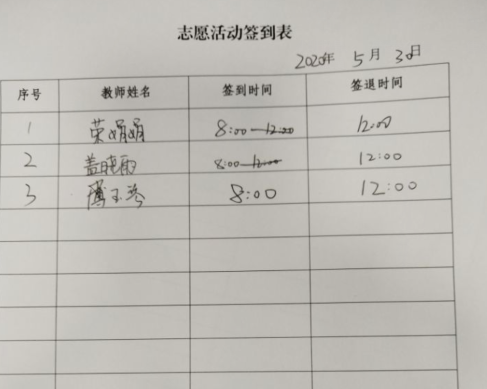 志愿活动签到表
2020年 5月 30日
序号 教师姓名 签到时间 签退时间
1 荣娟娟 8:00-12:00 12:00
2 盖晓雨 8:00-12:00 12:00
3 玉 8:00 12:00